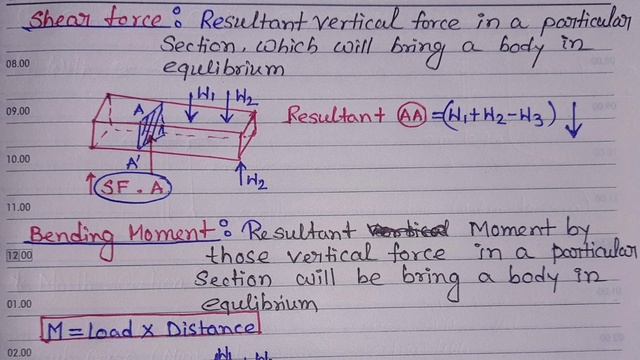 Shear force : Resultant vertical force in a particular
Section, which will bring a body in
equlibrium
08.00
09.00
10.00
11.00
12.00
01.00
02.00
W1 W2
A
A'
SF . A
W2
Resultant AA = (W1+W2-W3) ↓
Bending Moment : Resultant Moment by
those vertical force in a particular
Section will be bring a body in
equlibrium
M = Load x Distance
W1 W